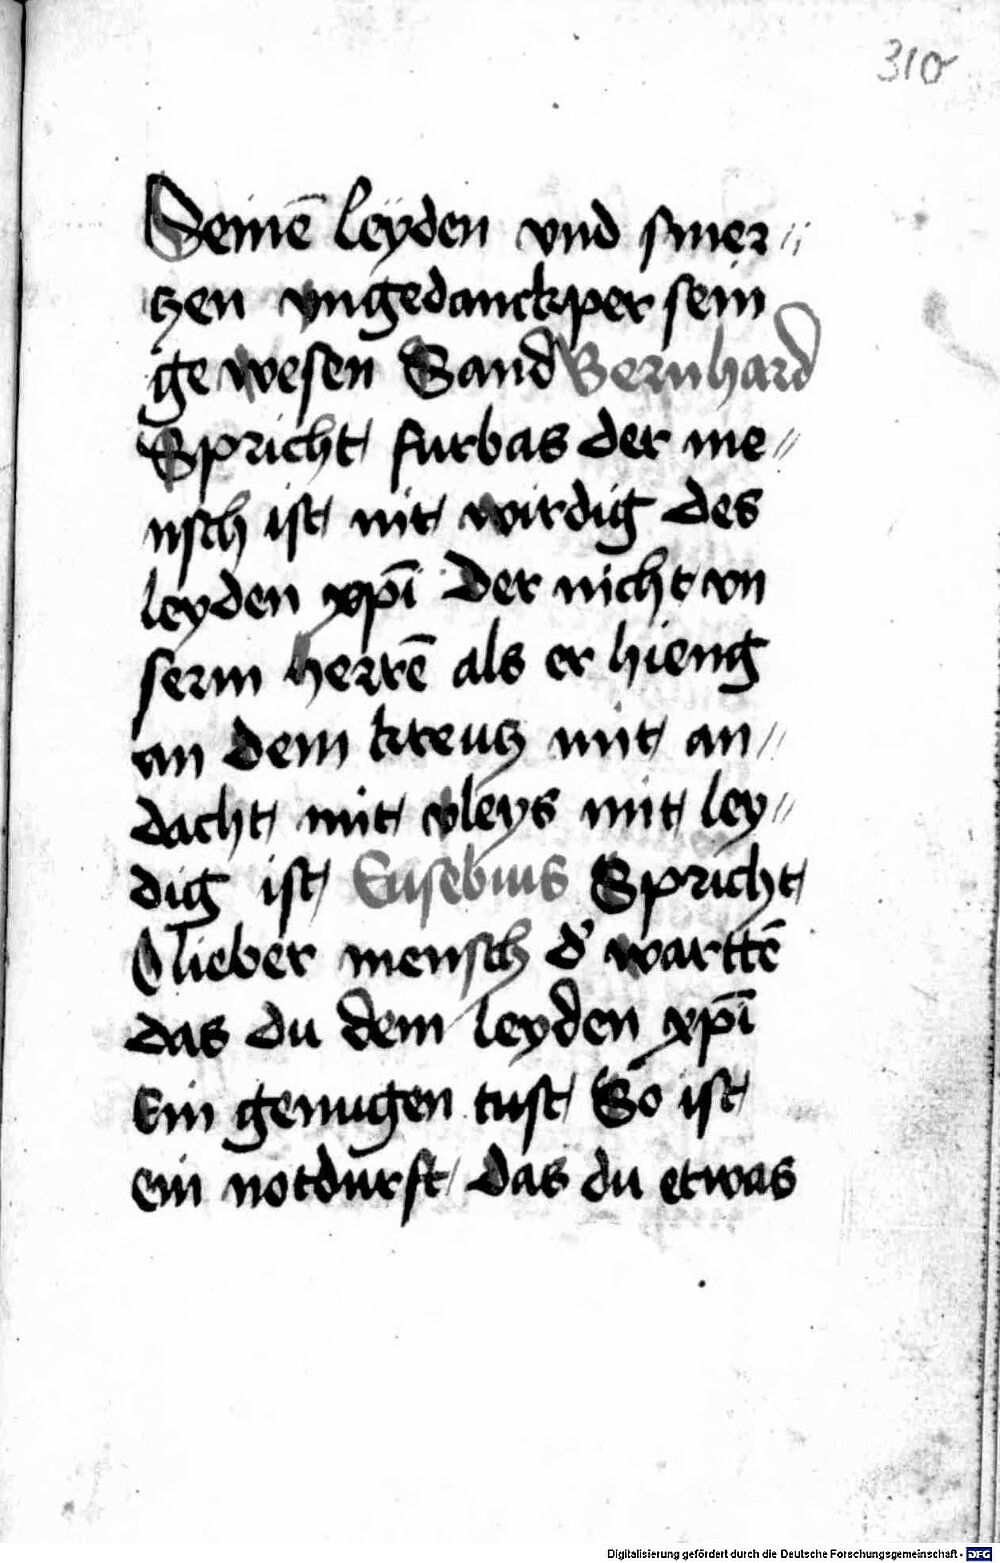 310
Seinē leyden vnd smer//
tzen vngedanckper sein
gewesen Sand Bernhard
Spricht furbas der me//
nsch ist nit wirdig des
leyden xp̄i Der nicht vn
serm herrē als er hieng
an dem kreutz mit an//
dacht mit vleys mit ley//
dig ist Eusebius Spricht
O lieber mensch d' warttē
das du dem leyden xp̄i
Ein genugen tust So ist
ein notdurft das du etwas
Digitalisierung gefördert durch die Deutsche Forschungsgemeinschaft - DFG